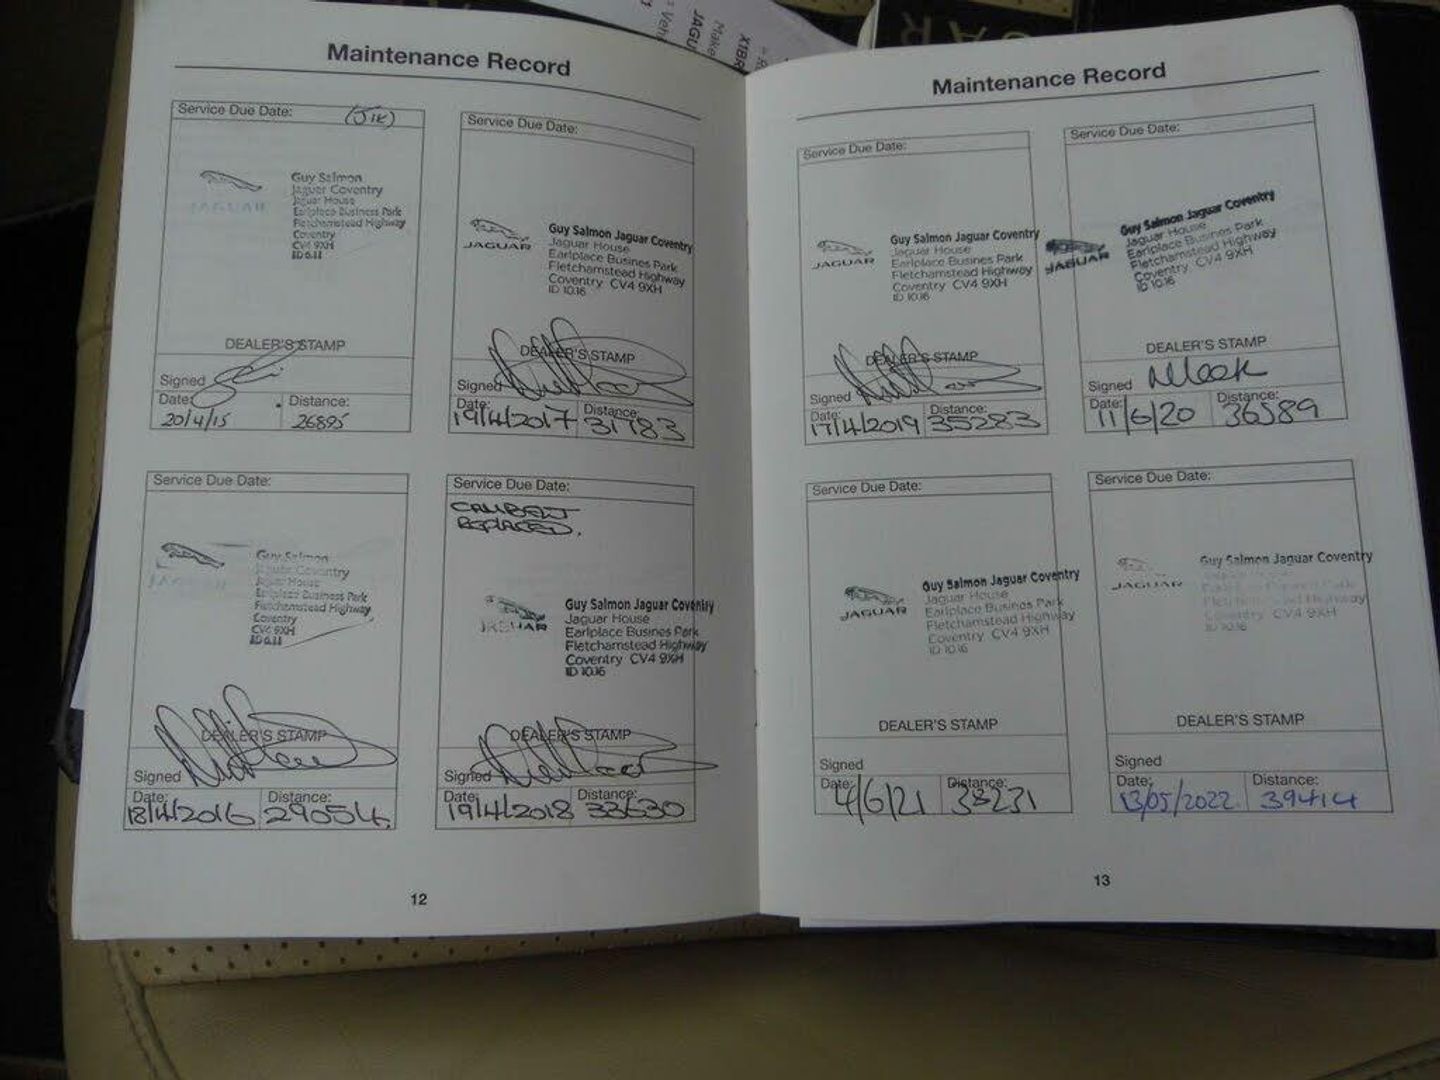 Maintenance Record
Service Due Date:
Guy Salmon
Jaguar Coventry
Jaguar House
Earlplace Business Park
Fletchamstead Highway
Coventry
CV4 9XH
ID 6.11
JAGUAR
DEALER'S STAMP
Signed
Date: Distance:
20/4/15 26895
Service Due Date:
Guy Salmon Jaguar Coventry
Jaguar House
Earlplace Busines Park
Fletchamstead Highway
Coventry CV4 9XH
ID 10.16
JAGUAR
DEALER'S STAMP
Signed
Date: Distance:
19/4/2017 31783
Service Due Date:
Guy Salmon
Jaguar Coventry
Jaguar House
Earlplace Business Park
Fletchamstead Highway
Coventry
CV4 9XH
ID 6.11
JAGUAR
DEALER'S STAMP
Signed
Date: Distance:
18/4/2016 29054
Service Due Date:
CAMBELT
REPLACED.
Guy Salmon Jaguar Coventry
Jaguar House
Earlplace Busines Park
Fletchamstead Highway
Coventry CV4 9XH
ID 10.16
JAGUAR
DEALER'S STAMP
Signed
Date: Distance:
19/4/2018 33630
12
Maintenance Record
Service Due Date:
Guy Salmon Jaguar Coventry
Jaguar House
Earlplace Busines Park
Fletchamstead Highway
Coventry CV4 9XH
ID 10.16
JAGUAR
DEALER'S STAMP
Signed
Date: Distance:
17/4/2019 35283
Service Due Date:
Guy Salmon Jaguar Coventry
Jaguar House
Earlplace Busines Park
Fletchamstead Highway
Coventry CV4 9XH
ID 10.16
JAGUAR
DEALER'S STAMP
Signed
Date: Distance:
11/6/20 36589
Service Due Date:
Guy Salmon Jaguar Coventry
Jaguar House
Earlplace Busines Park
Fletchamstead Highway
Coventry CV4 9XH
ID 10.16
JAGUAR
DEALER'S STAMP
Signed
Date: Distance:
4/6/21 38231
Service Due Date:
Guy Salmon Jaguar Coventry
Fletchamstead Highway
Coventry CV4 9XH
ID 10.16
JAGUAR
DEALER'S STAMP
Signed
Date: Distance:
13/05/2022 39414
13